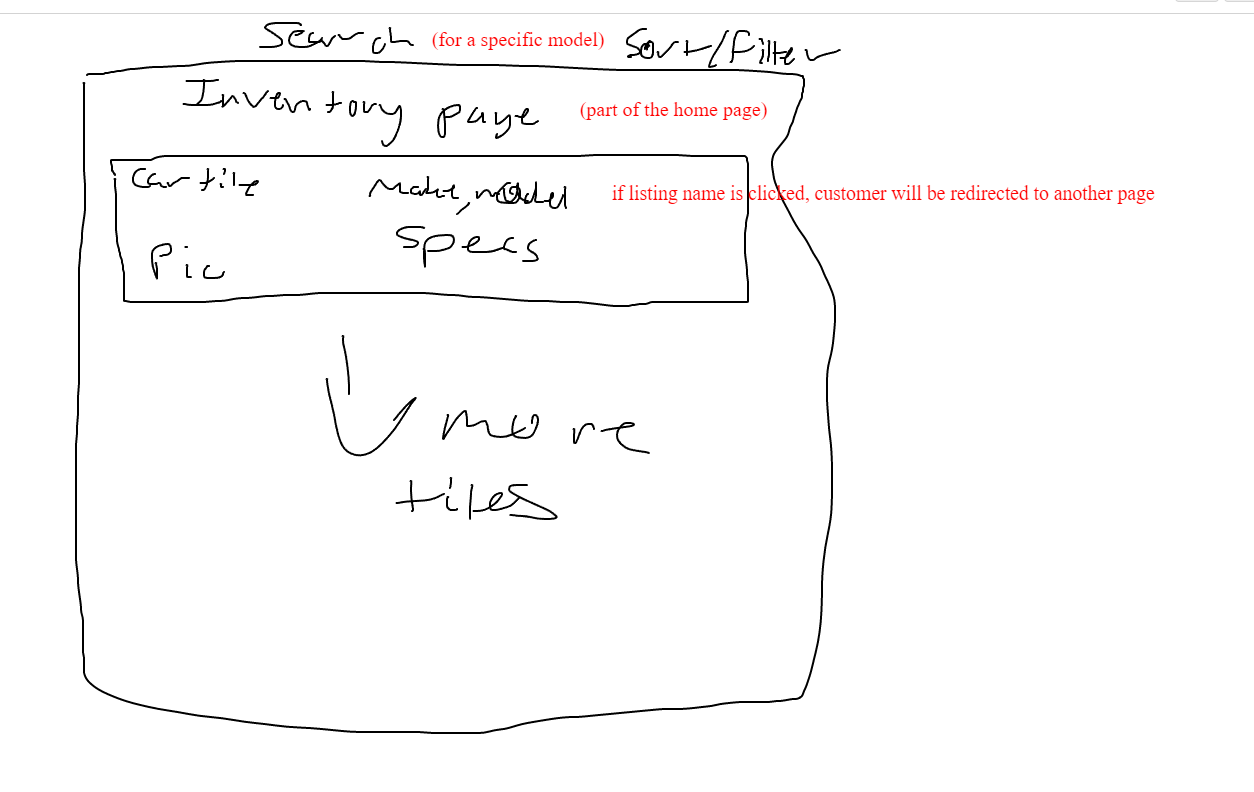 Search (for a specific model) Sort/Filter
Inventory page (part of the home page)
Car tile Make, model if listing name is clicked, customer will be redirected to another page
Pic Specs
more
tiles